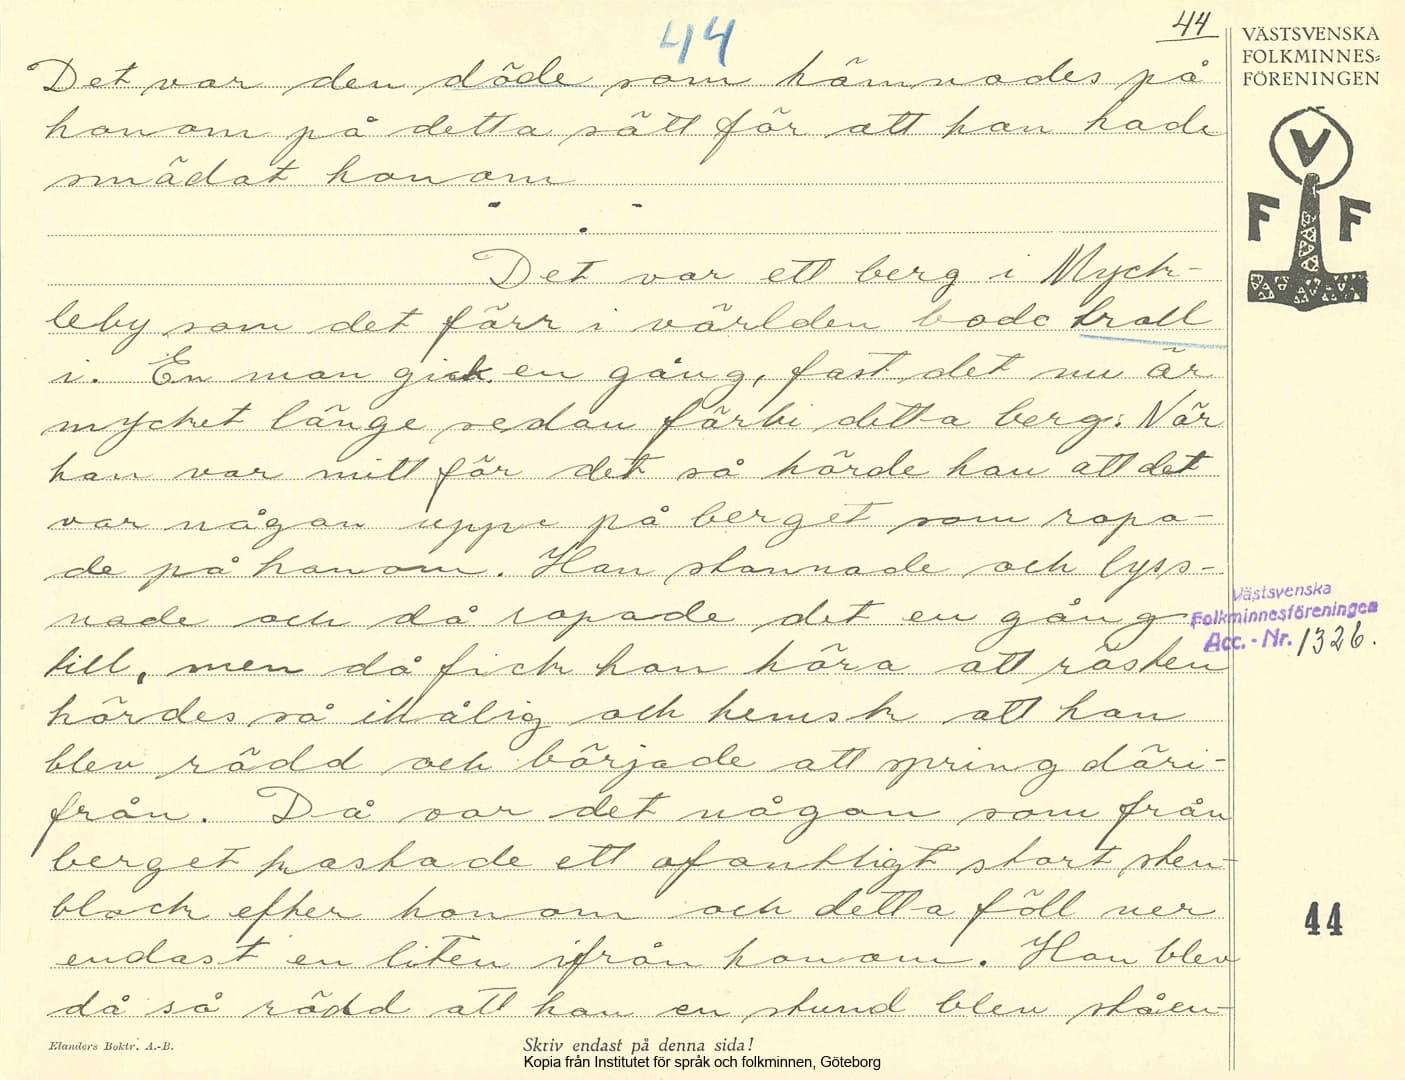 44
44
VÄSTSVENSKA
FOLKMINNES-
FÖRENINGEN
V
F F
Det var den döde som hämnades på
honom på detta sätt för att han hade
smädat honom
Det var ett berg i Myck-
leby som det förr i världen bodde troll
i. En man gick en gång, fast det nu är
mycket länge sedan förbi detta berg. När
han var mitt för det så hörde han att det
var någon uppe på berget som ropa-
de på honom. Han stannade och lyss-
nade och då ropade det en gång
till, men då fick han höra att rösten
hördes så ihålig och hemsk att han
blev rädd och började att spring däri-
från. Då var det någon som från
berget kastade ett ofantligt stort sten-
block efter honom och detta föll ner
endast en liten ifrån honom. Han blev
då så rädd att han en stund blev ståen-
Västsvenska
Folkminnesföreningen
Acc. - Nr. 1326.
44
Elanders Boktr. A.-B.
Skriv endast på denna sida!
Kopia från Institutet för språk och folkminnen, Göteborg